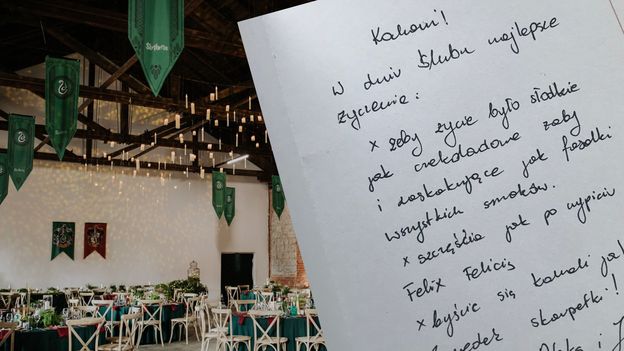 Slytherin
Kochani!
W dniu Ślubu najlepsze
życzenia:
x żeby życie było słodkie
jak czekoladowe żaby
i zaskakujące jak fasolki
wszystkich smaków.
x szczęścia jak po wypiciu
Felix Felicis
x byście się kochali jak
skarpetki!
i